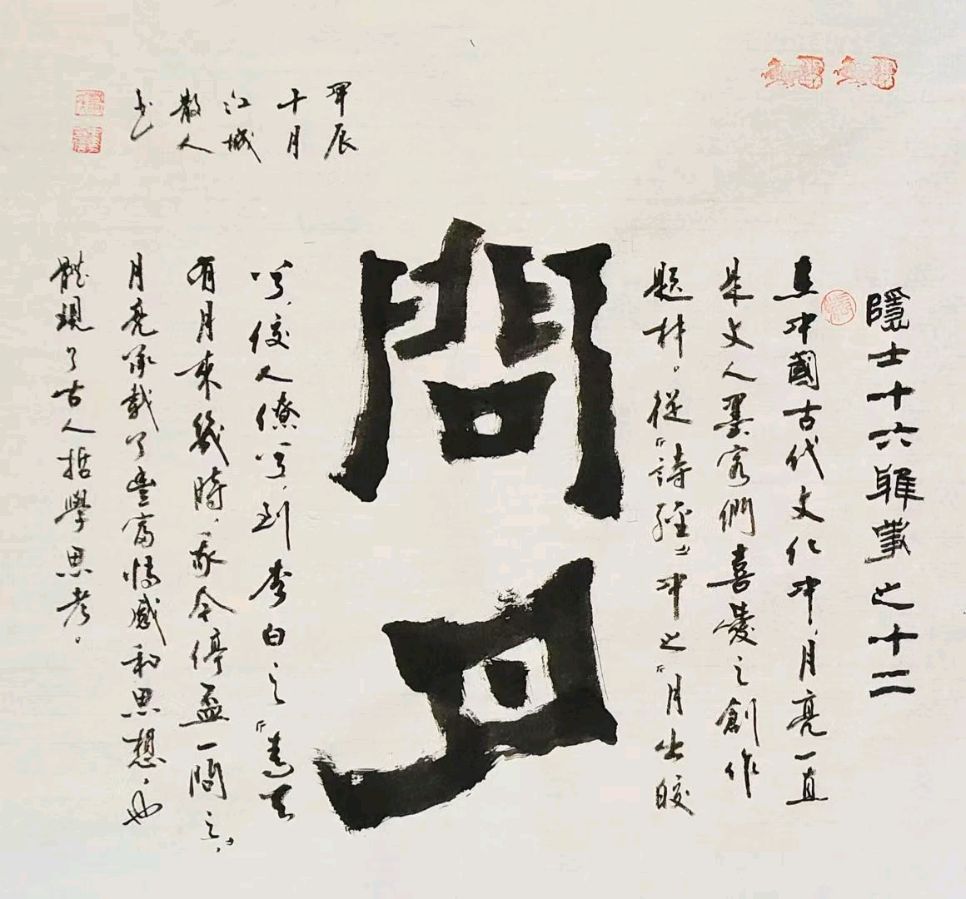 隱士十六雅事之十二
在中國古代文化中，月亮一直
是文人墨客們喜愛之創作
題材。從『詩經』中之『月出皎
問月
兮，佼人僚兮』，到李白之『青天
有月來幾時，我今停盃一問之』，
月亮承載了豐富情感和思想，也
體現了古人哲學思考。
甲辰
十月
江城
散人
书